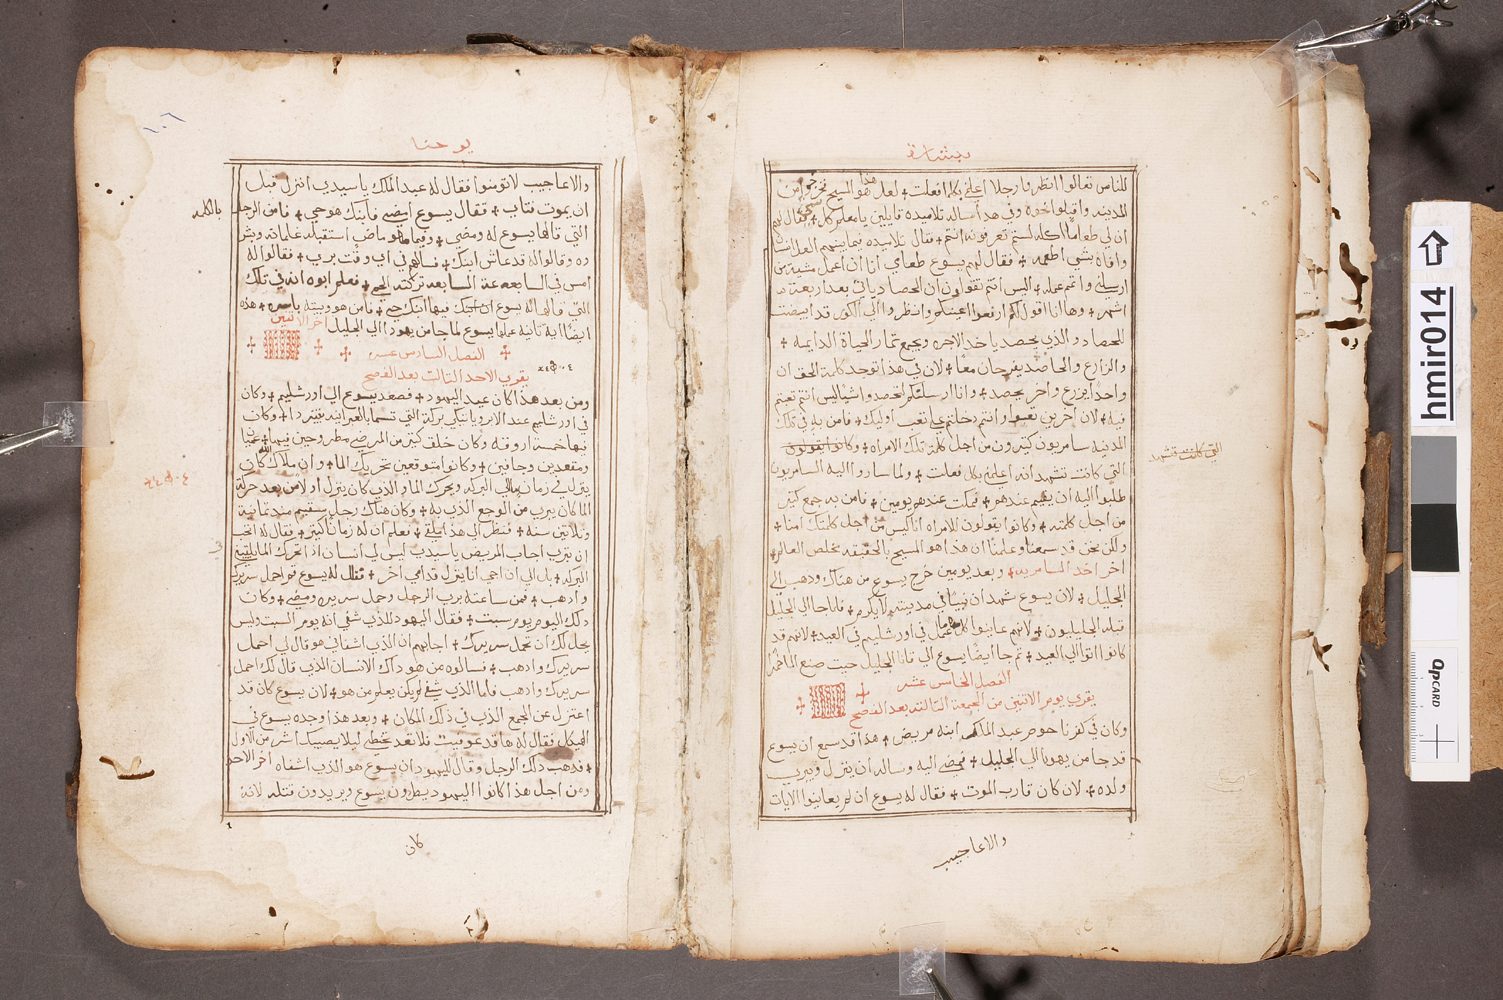 بشارة
للناس تعالوا انظروا رجلا اعلمني بكلما فعلت ✢ لعل هذا هو المسيح فخرجوا من
المدينه واقبلوا نحوه وفي هذا ساله تلاميذه قايلين يا معلم كل ✢ فقال لهم
ان لي طعاما اكله لستم تعرفونه انتم ✢ فقال تلاميذه فيما بينهم العل انسان
وافاه بشي اطعمه ✢ فقال لهم يسوع طعامي انا ان اعمل مشية من
ارسلني واتم عمله ✢ اليس انتم تقولون ان الحصاد ياتي بعد اربعة
اشهر ✢ وها انا اقول لكم ارفعوا اعينكم وانظروا الي الكور قد ابيضت
للحصاد والذي يحصد ياخذ الاجره ويجمع ثمار الحياة الدايمه ✢
والزارع والحاصد يفرحان معا ✢ لان في هذا توجد كلمة الحق ان
واحدا يزرع واخر يحصد ✢ وانا ارسلتكم لتحصدوا شيا ليس انتم تعبتم
فيه ✢ لان اخرين تعبوا وانتم دخلتم علي تعب اوليك ✢ فامن به في تلك
المدينه سامريون كثيرون من اجل كلمة تلك الامراه ✢ وكانوا يقولون
التي كانت تشهد انه اعلمني بكل فعلت ✢ ولما صاروا اليه السامريون
طلبوا اليه ان يقيم عندهم ✢ فمكث عندهم يومين ✢ فامن به جمع كثير
من اجل كلمته ✢ وكانوا يقولون للامراه انا ليس من اجل كلمتك امنا ✢
ولكن نحن قد سمعنا وعلمنا ان هذا هو المسيح بالحقيقه مخلص العالم ✢
اخر احد السامريه ✢ وبعد يومين خرج يسوع من هناك وذهب الي
الجليل ✢ لان يسوع شهد ان نبيا في مدينته لا يكرم ✢ فلما جا الي الجليل
قبله الجليليون ✢ لانهم عاينوا كلما عمل في اورشليم في العيد ✢ لانهم قد
كانوا اتوا الي العيد ✢ ثم جا ايضا يسوع الي قانا الجليل حيث صنع الما خمرا
الفصل الخامس عشر
يقري يوم الاثنين من الجمعة الثالثه بعد الفصح
وكان في كفرناحوم عبد الملك ابنه مريض ✢ هذا قد سمع ان يسوع
قد جا من يهوذا الي الجليل ✢ فمضي اليه وساله ان ينزل ويبري
ولده ✢ لان كان قارب الموت ✢ فقال له يسوع ان لم تعاينوا الايات
والاعاجيب
التي كانت تشهد
يوحنا
١٠٦
والاعاجيب لا تومنوا فقال له عبد الملك يا سيدي انزل قبل
ان يموت فتاي ✢ فقال يسوع امضي فابنك هو حي ✢ فامن الرجل بالكلمه
التي قالها يسوع له ومضي ✢ وفيما هو ماض استقبله غلمانه وبشر
وه وقالوا له قد عاش ابنك ✢ فسالهم في اي وقت بري ✢ فقالوا له
امس في الساعة السابعه تركته الحمي ✢ فعلم ابوه انه في تلك
التي قال له يسوع ان ابنك حي ✢ فامن هو وبيته باسره ✢ هذه
ايضا اية ثانيه عملها يسوع لما جا من يهوذا الي الجليل اخر الاثنين
الفصل السادس عشر
يقري الاحد الثالث بعد الفصح
ومن بعد هذا كان عيد اليهود ✢ فصعد يسوع الي اورشليم ✢ وكان
في اورشليم عند الابروباتيكي بركة التي تسما بالعبرانيه بيترد ا ✢ وكان
فيها خمسة اروقه وكان خلق كثير من المرضي مطروحين فيها ✢ عميان
ومقعدين وجافين ✢ وكانوا متوقعين تحريك الما ✢ وان ملاك الله كان
ينزل في زمان الي البركه ويحرك الما والذي كان ينزل اولا من بعد حركة
الما كان يبري من الوجع الذي به ✢ وكان هناك رجل سقيم منذ ثمانية
وثلاثين سنه ✢ فنظر الي هذا ملقي ✢ فعلم ان له زمانا كثير ✢ فقال له اتحب
ان تبري اجاب المريض يا سيدي ليس لي انسان اذا تحرك الما يلقيني في
البركه ✢ بل الي ان اجي انا ينزل قدامي اخر ✢ فقال له يسوع قم احمل سريرك
واذهب ✢ فمن ساعته بري الرجل وحمل سريره ومضي ✢ وكان
ذلك اليوم يوم سبت ✢ فقال اليهود للذي شفي انه يوم السبت وليس
يحل لك ان تحمل سريرك ✢ اجابهم ان الذي اشفاني هو قال لي احمل
سريرك واذهب ✢ فسالوه من هو ذلك الانسان الذي قال لك احمل
سريرك واذهب فاما الذي شفي لم يكن يعلم من هو ✢ لان يسوع كان قد
اعتزل عن الجمع الذي في ذلك المكان ✢ وبعد هذا وجده يسوع في
الهيكل فقال له ها قد عوفيت فلا تعد تخطي ليلا يصيبك اشر من الاول
✢ فذهب ذلك الرجل وقال لليهود ان يسوع هو الذي اشفاه اخر الاحد
ومن اجل هذا كانوا اليهود يطردون يسوع ويريدون قتله لانه
كان
hmir014
QPCARD